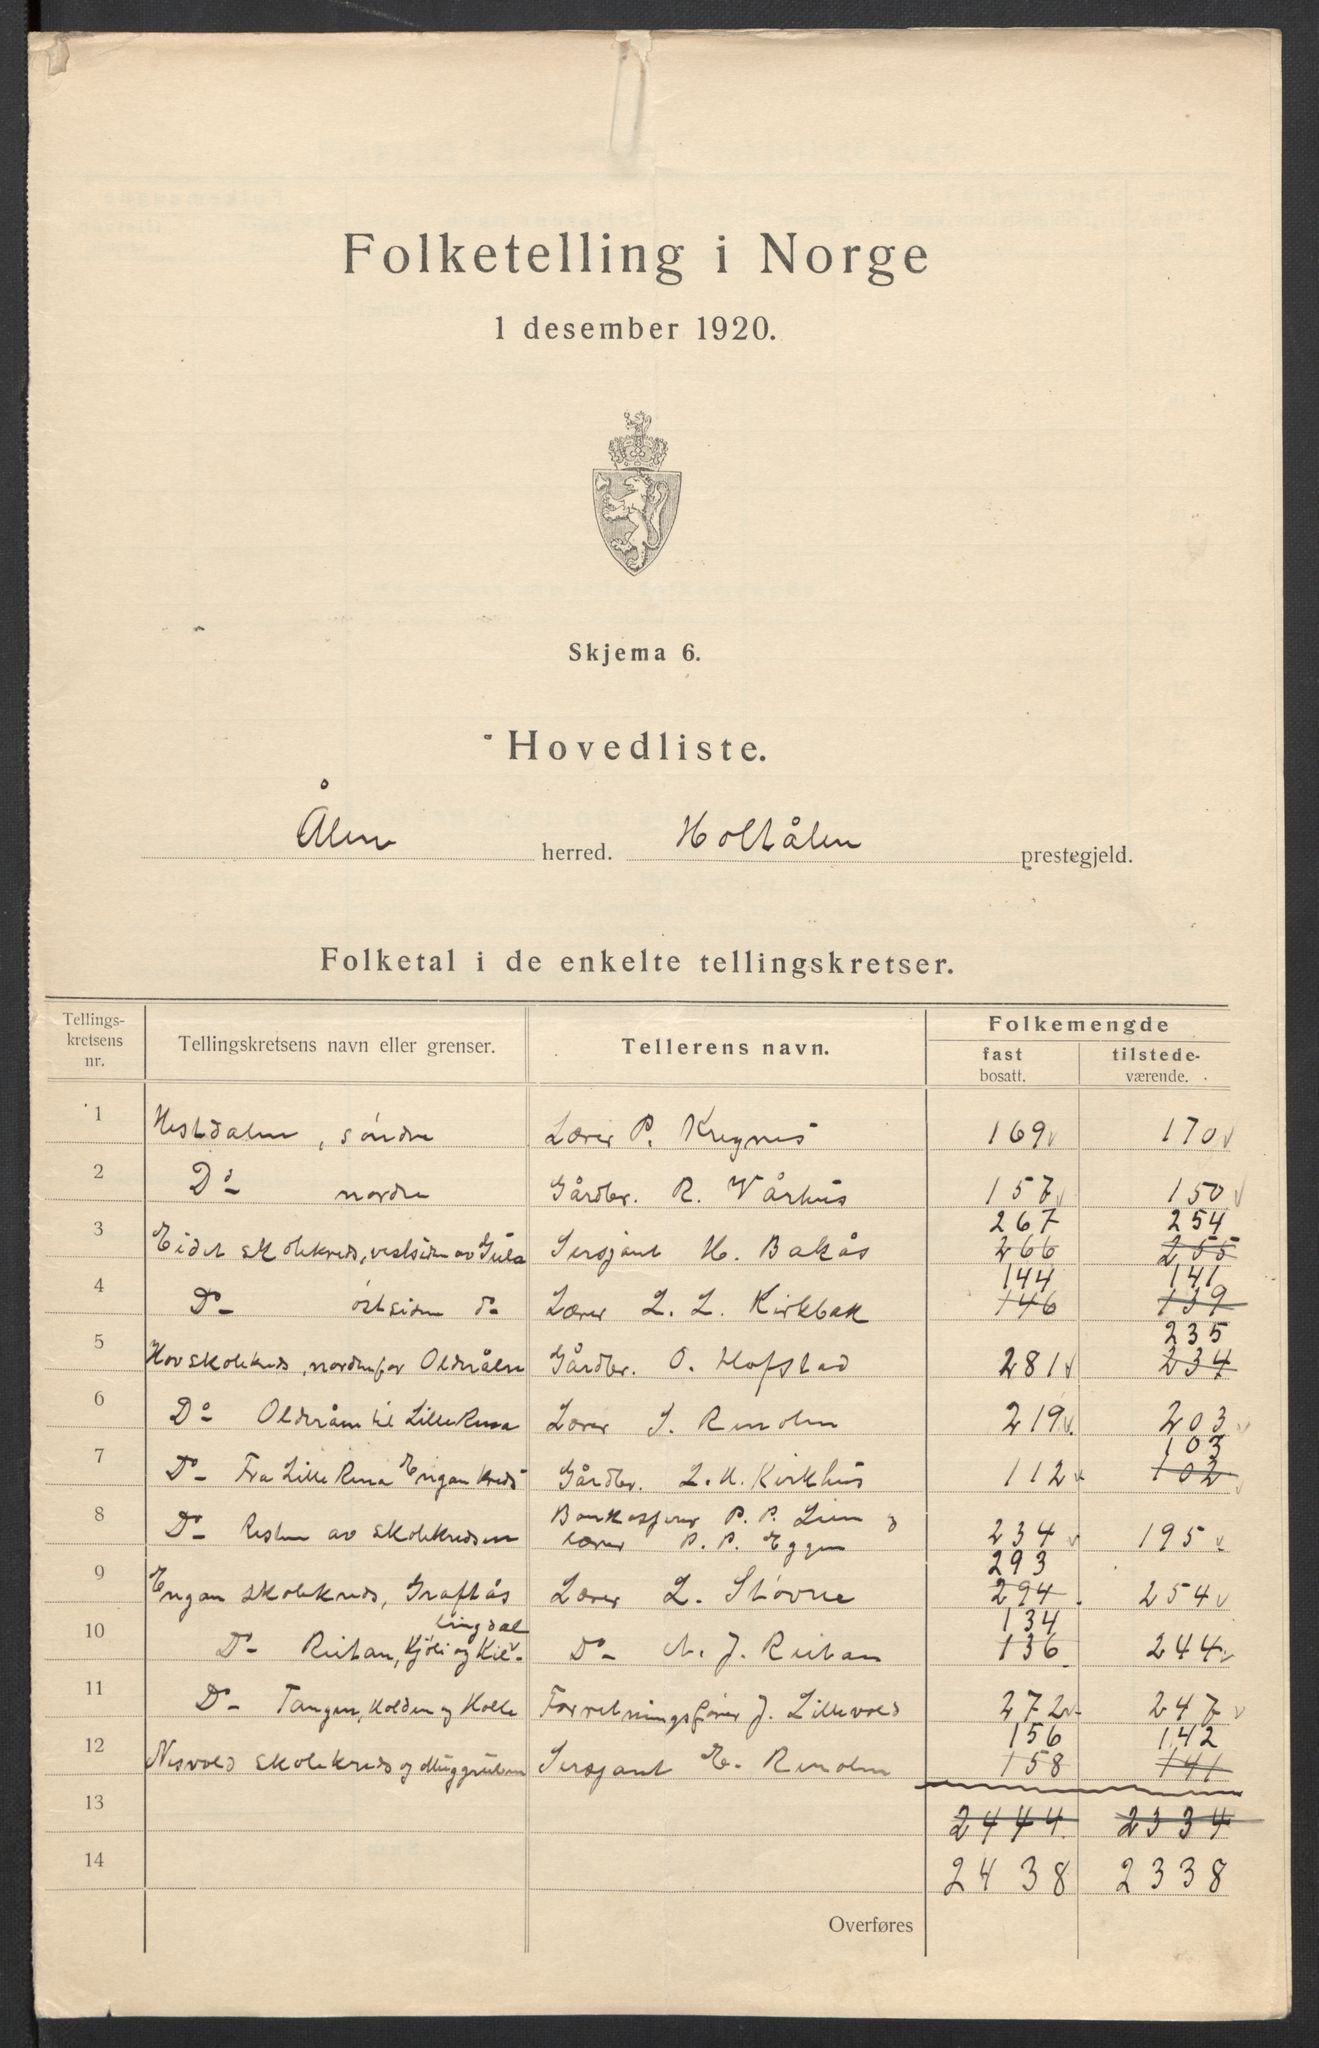 Folketelling i Norge
1 desember 1920.
Skjema 6.
Hovedliste.
Ålen herred. Holtålen prestegjeld.
Folketal i de enkelte tellingskretser.
Tellings-
kretsens
nr.
Tellingskretsens navn eller grenser.
Tellerens navn.
Folkemengde
fast
bosatt.
tilstede-
værende.
1 Hestdalen, söndre Lærer P. Krignes 169 170
2 Do nordre Gårdbr. R. Vårhus 157 150
267 254
3 Eidet skolekreds, vestsiden av Gula Sersjant H. Bakås 266 255
144 141
4 Do östsiden do Lærer L. L. Kirkbak 146 139
235
5 Hov skolekreds, nordenfor Olderåen Gårdbr. O. Hofstad 281 234
6 Do Olderåen til Lille Rena Lærer J. Renolen 219 203
103
7 Do Fra Lille Rena Engan kreds Gårdbr. L. K. Kirkhus 112 102
8 Do Resten av skolekredsen Bankasserer P. P. Lien og
lærer P. P. Eggen 234 195
293
9 Engan skolekreds, Graftås Lærer L. Støvne 294 254
lingdal 134
10 Do Reitan, Kjöli og Kil- Do A. J. Reitan 136 244
11 Do Tangen, Holden og Holla Forretningsfører J. Lillevold 272 247
156 142
12 Nesvold skolekreds og Muggruben Sersjant E. Renolen 158 141
13 2444 2334
14 2438 2338
Overføres